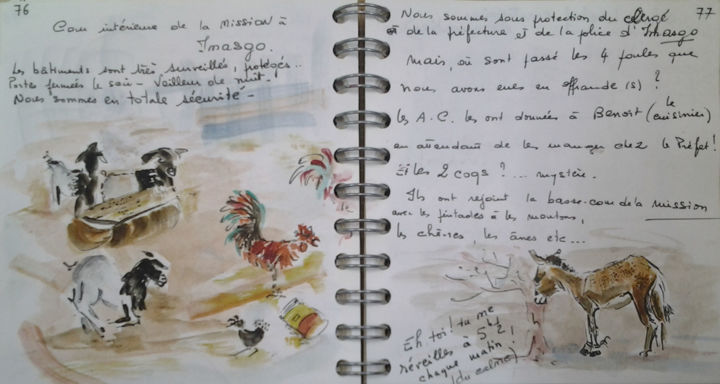 76
Cour intérieure de la Mission à
Imasgo.
Les bâtiments sont très surveillés, protégés..
Portes fermées le soir - Veilleur de nuit.
Nous sommes en totale sécurité -
77
Nous sommes sous protection du clergé
et de la préfecture et de la police d'Imasgo
Mais, où sont passé les 4 poules que
nous avons eues en offrande(s) ?
Les A.C. les ont données à Benoit (le cuisinier)
en attendant de les manger chez le Préfet !
Et les 2 coqs ?... mystère.
Ils ont rejoint la basse-cour de la mission
avec les pintades & les moutons,
les chèvres, les ânes etc...
Eh toi ! tu me
réveilles à 5h
chaque matin !
(du calme)